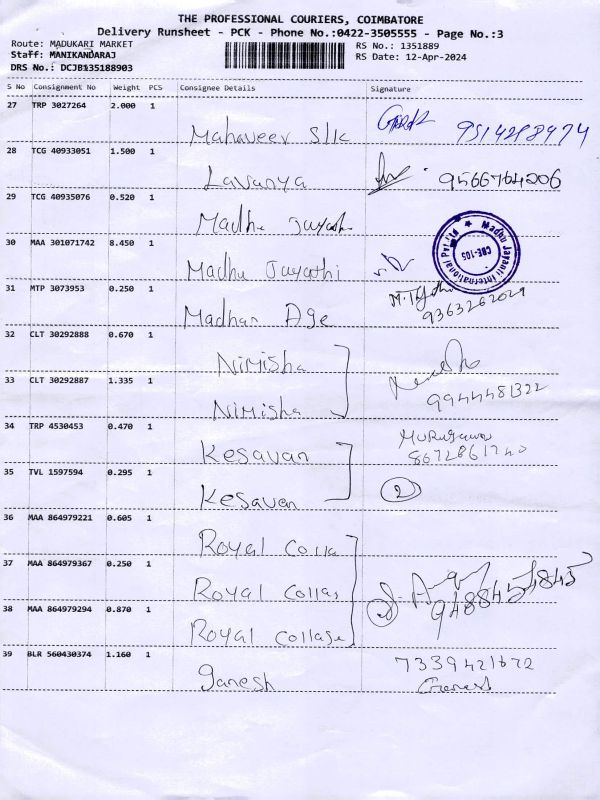 THE PROFESSIONAL COURIERS, COIMBATORE
Delivery Runsheet - PCK - Phone No.:0422-3505555 - Page No.:3
Route: MADUKARI MARKET
Staff: MANIKANDARAJ
DRS No.: DCJB135188903
RS No.: 1351889
RS Date: 12-Apr-2024
S No Consignment No Weight PCS Consignee Details Signature
27 TRP 3027264 2.000 1
Mahaveer Slk 9514298974
28 TCG 40933051 1.500 1
Lavanya 9566764206
29 TCG 40935076 0.520 1
Madhu Jayath
30 MAA 301071742 8.450 1
Madhu Jayathi
Madhu Jayanti International Pvt Ltd
CBE-105
31 MTP 3073953 0.250 1
Madhan Age 9363262029
32 CLT 30292888 0.670 1
Nimisha
33 CLT 30292887 1.335 1
Nimisha 9944481322
34 TRP 4530453 0.470 1
Kesavan Murugavan
8672861740
35 TVL 1597594 0.295 1
Kesavan 2
36 MAA 864979221 0.605 1
Royal Colla
37 MAA 864979367 0.250 1
Royal Collag
38 MAA 864979294 0.870 1
Royal Collage
39 BLR 560430374 1.160 1
ganesh 7339421672